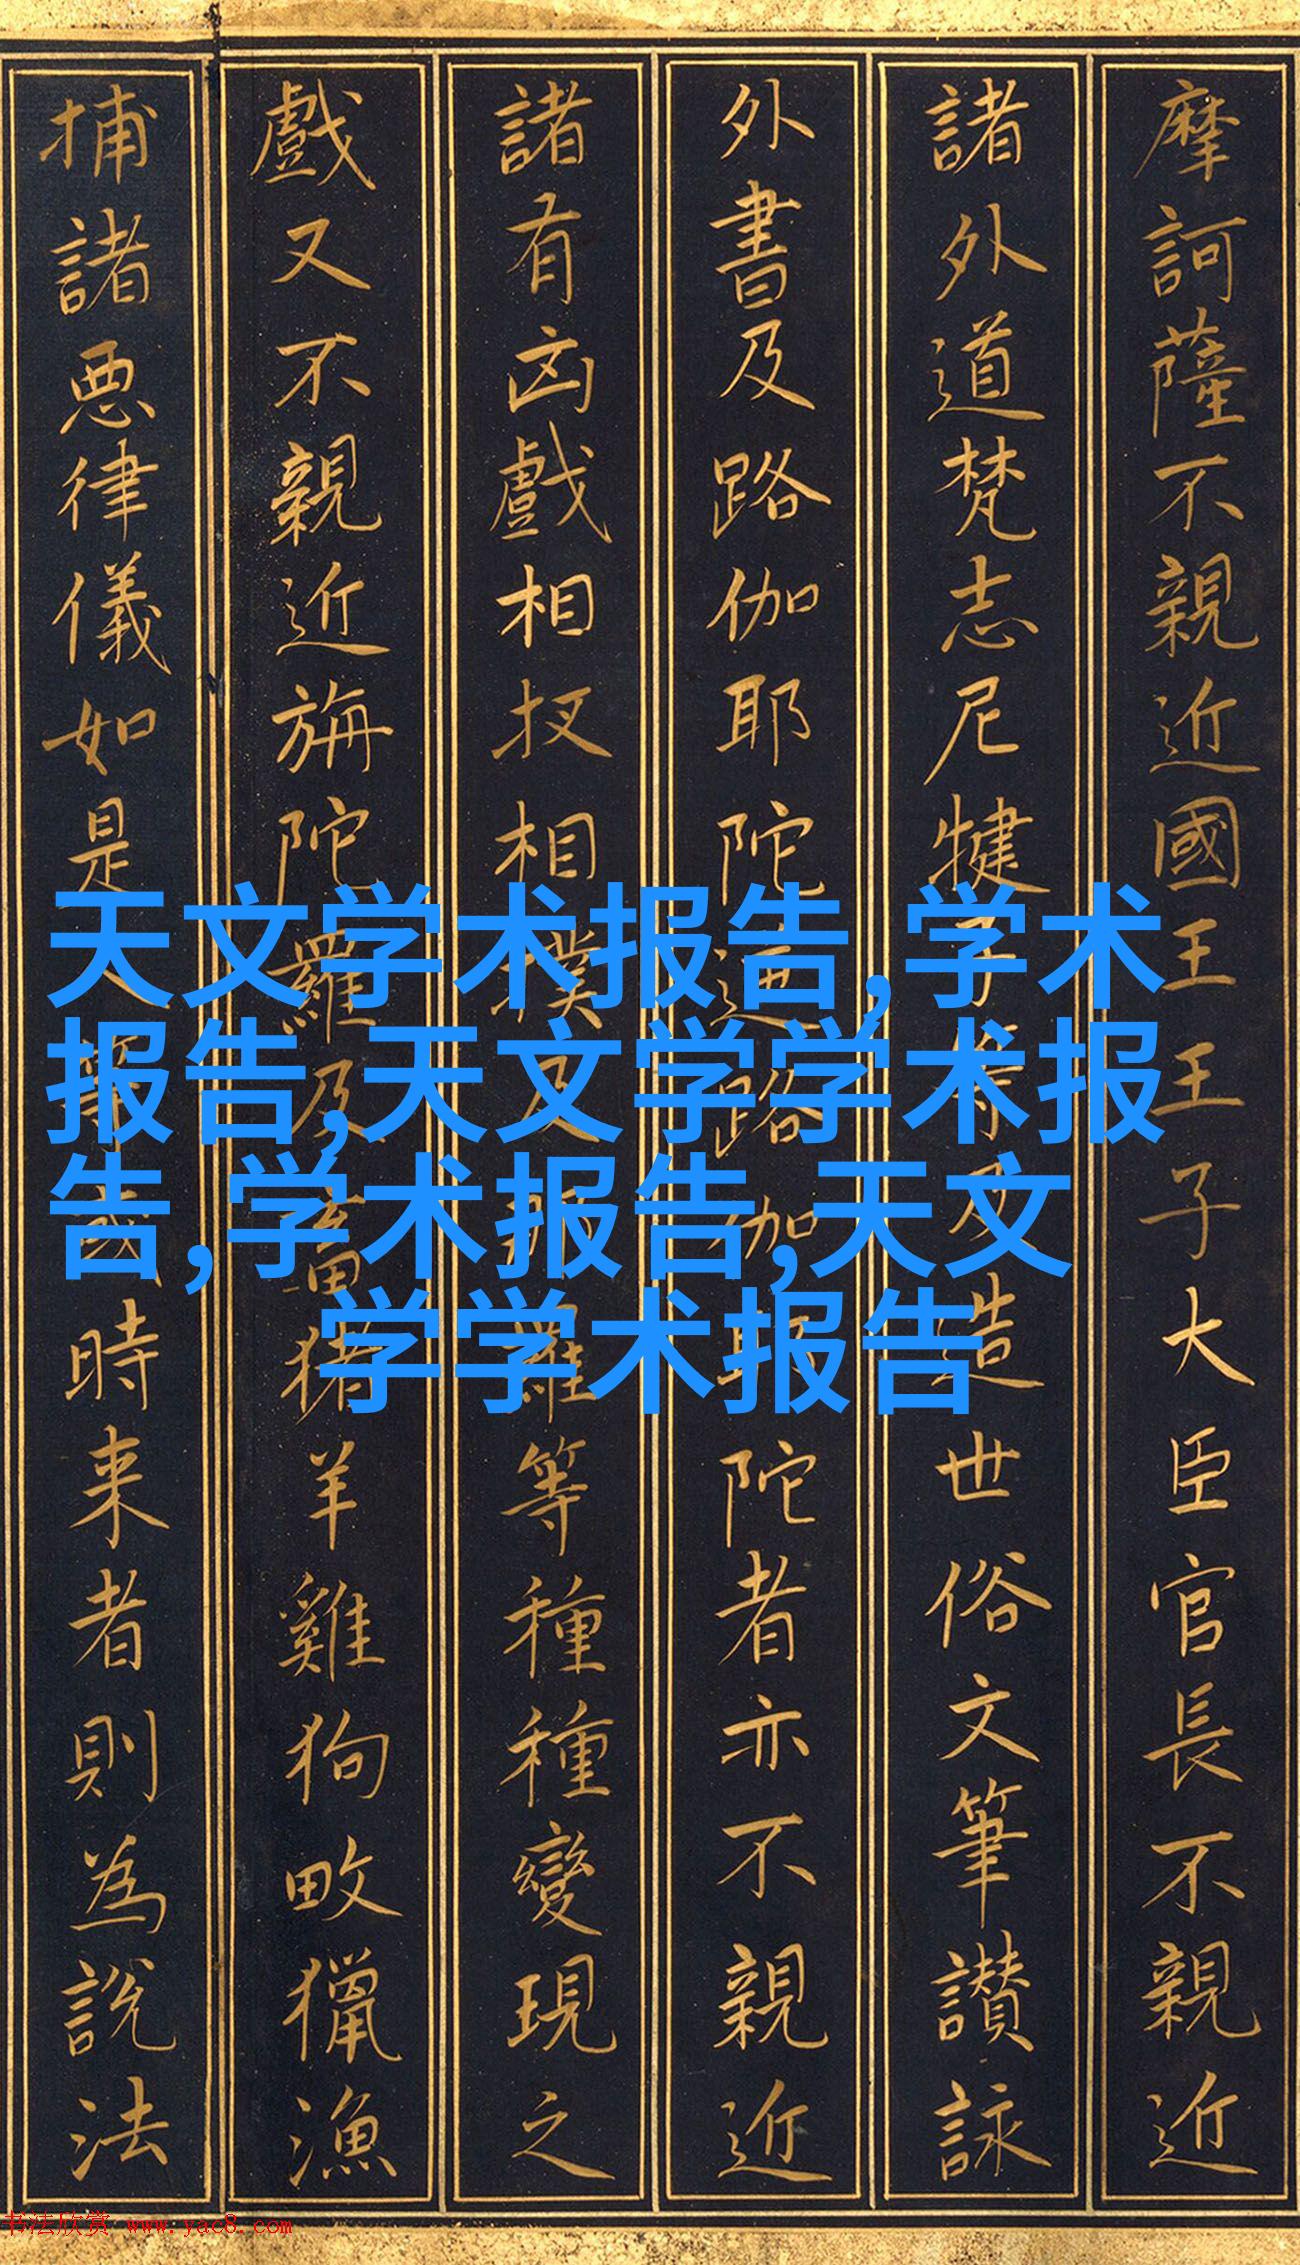 摩訶薩不親近國王王子大臣官長不親近
諸外道梵志尼犍造世俗文筆讃詠
外書及路伽耶陀路伽耶陀者亦不親近
諸有凶戲相扠相撲及羅等種種變現之
戲又不親近旃陀羅及畜猪羊雞狗畋獵漁
捕諸悪律儀如是時来者則為說法
天文学术报告,学术
报告,天文学学术报
告,学术报告,天文
学学术报告
书法欣赏 www.yac8.com